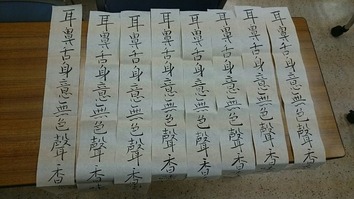 耳鼻舌身意無色聲香
耳鼻舌身意無色聲香
耳鼻舌身意無色聲香
耳鼻舌身意無色聲香
耳鼻舌身意無色聲香
耳鼻舌身意無色聲香
耳鼻舌身意無色聲香